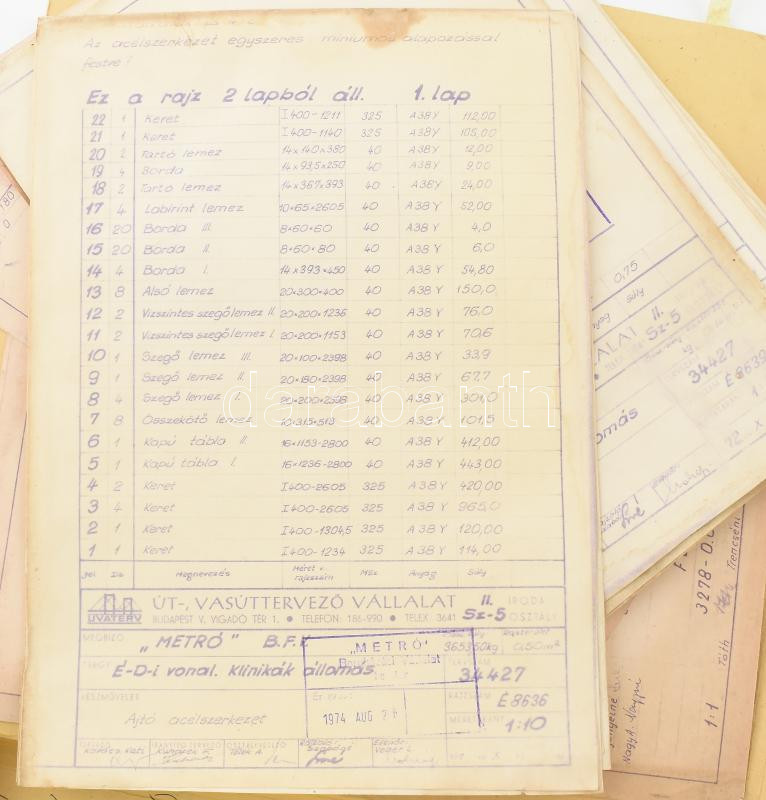 Az acélszerkezet egyszeres míniumos alapozással
festve!
Ez a rajz 2 lapból áll. 1. lap
22 1 Keret I400-1211 325 A38Y 112,00
21 1 Keret I400-1140 325 A38Y 105,00
20 2 Tartó lemez 14x140x380 40 A38Y 12,00
19 4 Borda 14x93,5x250 40 A38Y 9,00
18 2 Tartó lemez 14x367x393 40 A38Y 24,00
17 4 Labirint lemez 10x65x2605 40 A38Y 52,00
16 20 Borda III. 8x60x60 40 A38Y 4,0
15 20 Borda II. 8x60x80 40 A38Y 6,0
14 4 Borda I. 14x393x450 40 A38Y 54,80
13 8 Alsó lemez 20x300x400 40 A38Y 150,0
12 2 Vízszintes szegőlemez II. 20x200x1236 40 A38Y 76,0
11 2 Vízszintes szegőlemez I. 20x200x1153 40 A38Y 70,6
10 1 Szegő lemez III. 20x100x2398 40 A38Y 33,9
9 1 Szegő lemez II. 20x180x2398 40 A38Y 67,7
8 4 Szegő lemez I. 20x200x2398 40 A38Y 301,0
7 8 Összekötő lemez 10x315x513 40 A38Y 101,5
6 1 Kapú tábla II. 16x1153-2800 40 A38Y 412,00
5 1 Kapú tábla I. 16x1236-2800 40 A38Y 443,00
4 2 Keret I400-2605 325 A38Y 420,00
3 4 Keret I400-2605 325 A38Y 965,0
2 1 Keret I400-1304,5 325 A38Y 120,00
1 1 Keret I400-1234 325 A38Y 114,00
Jel Db Megnevezés Méret v. rajzszám MSz Anyag Súly
UVATERV ÚT-, VASÚTTERVEZŐ VÁLLALAT II. IRODA
BUDAPEST V., VIGADÓ TÉR 1. • TELEFON: 186-990 • TELEX 3641 Sz-5 OSZTÁLY
MEGBÍZÓ „METRÓ” B.F.
„METRÓ”
365350kg 0,50m²
TÁRGY É-D-i vonal. Klinikák állomás.
34427
RÉSZMŰVELET Ajtó acélszerkezet
1974 AUG 26
RAJZSZÁM É 8636
MÉRETARÁNY 1:10
darabanth
0,75
Súly
II.
Sz-5
34427
É 8639
72 - X
3278-0.
Trencséni
Tóth
1:1
Nagy A.